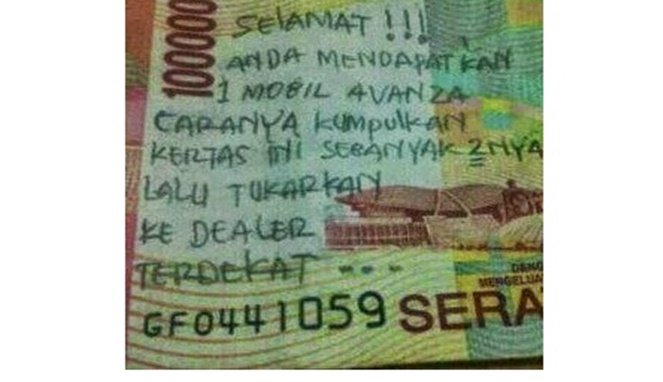 100000
SELAMAT !!!
ANDA MENDAPATKAN
1 MOBIL AVANZA
CARANYA KUMPULKAN
KERTAS INI SEBANYAK 2NYA
LALU TUKARKAN
KE DEALER
TERDEKAT ---
DENG
MENGELUA
GF0441059 SERA